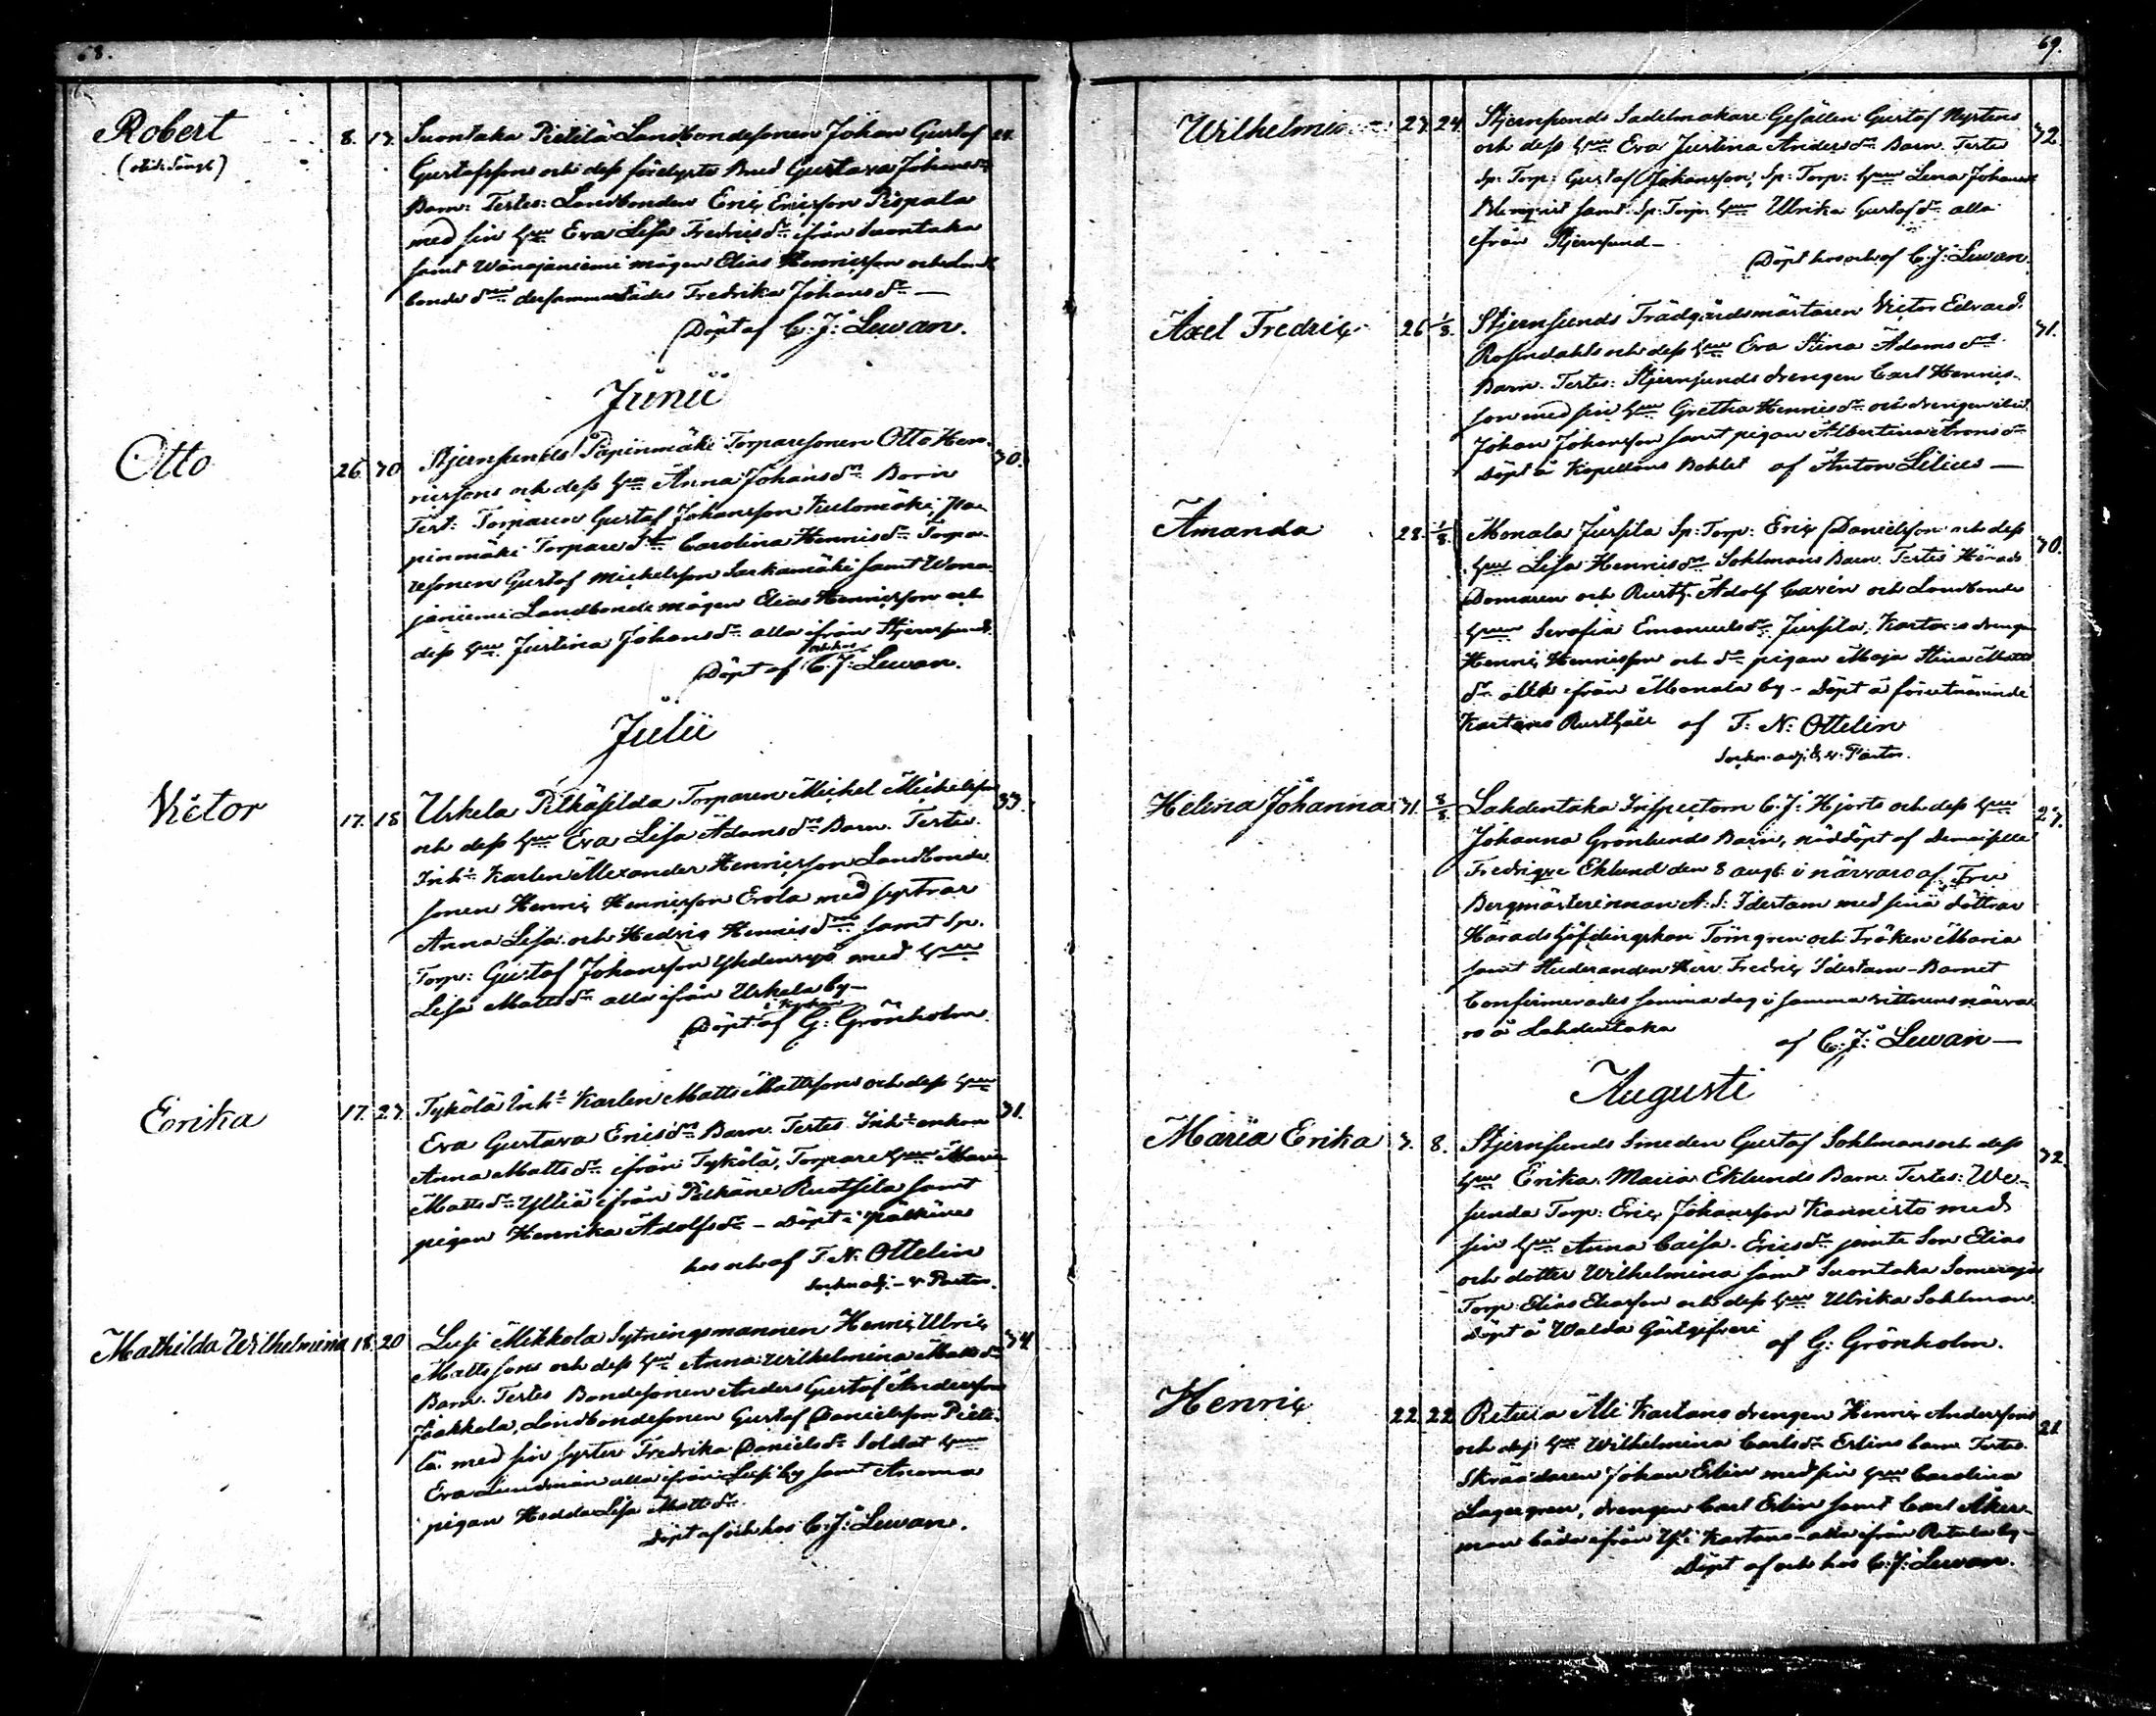 68.
Robert 8. 17. Suontaka Pietilä Landbondesonen Johan Gustaf 24.
Gustafssons och dess förelyste Brud Gustava Johans dr
Barn: Testes: Landbonden Eric Ericsson Pispala
med sin hru Eva Lisa Fredrics dr ifrån Suontaka
samt Wänäjäniemi mågen Elias Henricsson och Land
bonde dren dersammastädes Fredrika Johans dr —
Döpt af C: J: Lewan.
Junii
Otto 26 30 Stjernsunds Papinmäki Torparesonen Otto Hen- 30.
ricssons och dess hru Anna Johans dr Barn
Test: Torparen Gustaf Johansson Kulomäki, Pa-
pinmäki Torpare dr Carolina Henrics dr Torpa-
resonen Gustaf Mickelsson Sarkamäki samt Wänä
jäniemi Landbonde mågen Elias Henricsson och
dess hru Justina Johans dr alla ifrån Stjernsund.
Döpt af och hos C: J: Lewan.
Julii
Victor 17. 18 Urkela Torparen Michel Michelsson 33.
och dess hru Eva Lisa Adams drs Barn. Testes
Inhs Karlen Alexander Henricsson Landbonde
sonen Henric Henricsson Erola med systrar
Anna Lisa och Hedvig Henrics dr samt Sp.
Torp: Gustaf Johansson med hru
Lisa Matts dr alla ifrån Urkela by —
Döpt i Kyrkan af G: Grönholm.
Erika 17. 27. Tykölä Inhs Karlen Matts Mattssons och dess hru 31.
Eva Gustava Erics drs Barn. Testes Inhs enkan
Anna Matts dr ifrån Tykölä, Torpare hru Maria
Matts dr Ylliä ifrån Pälkäne Ruotsila samt
pigan Henrika Adolfs dr — Döpt i Pälkäne
hos och af F. N. Ottelin
Sockn adj. — v. Pastor.
Mathilda Wilhelmina 18. 20 Lusi Mikkola Sytningsmannen Henric Ulric 34.
Mattssons och dess hru Anna Wilhelmina Matts drs
Barn. Testes Bondesonen Anders Gustaf Andersson
Jaakkola, Landbondesonen Gustaf Danielsson Pieti-
lä med sin syster Fredrika Daniels dr Soldat hru
Eva Lundman alla ifrån Lusi by samt Anoma
pigan Hedda Lisa Matts dr
Döpt af och hos C: J: Lewan.
69.
Wilhelmina 23. 24. Stjernsunds Sadelmakare Gesällen Gustaf Nyströms 32.
och dess hru Eva Justina Anders drs Barn. Testes
Sp: Torp: Gustaf Johansson, Sp: Torp: hru Lena Johans dr
Blmqvist samt Sp: Torp: hru Ulrika Gustafs dr alla
ifrån Stjernsund —
Döpt hos och af C: J: Lewan.
Axel Fredric 26 1/8. Stjernsunds Trädgårdsmästaren Victor Edvard 31.
Rosendahls och dess hru Eva Stina Adams drs
Barn. Testes: Stjernsunds drengen Carl Henrics-
son med sin hru Gretha Henrics dr och drengen ibid.
Johan Johansson samt pigan Albertina Arons dr
Döpt å Kapellans Bohlet af Anton Lilius —
Amanda 28. 1/8. Monala Jussila Sp: Torp: Eric Danielsson och dess 30.
hru Lisa Henrics drs Sohlmans Barn. Testes Härads
Domaren och Rusth. Adolf Cavén och Landbonde
hrun Serafia Emanuels dr Jussila, Kartano drengen
Henric Henricsson och dr pigan Maja Stina Matts
dr alla ifrån Monala by — Döpt å förutnämnde
Kartano Rusthåll af F: N: Ottelin
Sockn. adj. & v. Pastor.
Helena Johanna 31. 8/8. Lahdentaka Inspectorn C: J: Hjorts och dess hru 27.
Johanna Grönlunds Barn, nöddöpt af Demoiselle
Fredrique Eklund den 8 aug. i närvaro af Fru
Bergmästerinnan A: S: Idestam med sina döttrar
Häradshöfdingskan Törngren och Fröken Maria
samt Studeranden Herr Fredric Idestam — Barnet
Confirmerades samma dag i samma vittnens närva-
ro å Lahdentaka
af C: J: Lewan —
Augusti
Maria Erika 7. 8. Stjernsunds Smeden Gustaf Sohlmans och dess 32.
hru Erika Maria Eklunds Barn. Testes: We-
sunda Torp: Eric Johansson Kannisto med
sin hru Anna Caisa Erics dr jemte Son Elias
och dotter Wilhelmina samt Suontaka Someroja
Torp: Elias Eliasson och dess hru Ulrika Sohlman.
Döpt å Walda Gästgifveri af G: Grönholm.
Henric 22. 22. Retula Ali Kartano drengen Henric Anderssons 21.
och dess hru Wilhelmina Carls dr Erlins barn. Testes.
Skräddaren Johan Erlin med sin hru Carolina
Lagergren, drengen Carl Erlin samt Carl Åker-
man båda ifrån Yli Kartano — alla ifrån Retula by —
Döpt af och hos C: J: Lewan.